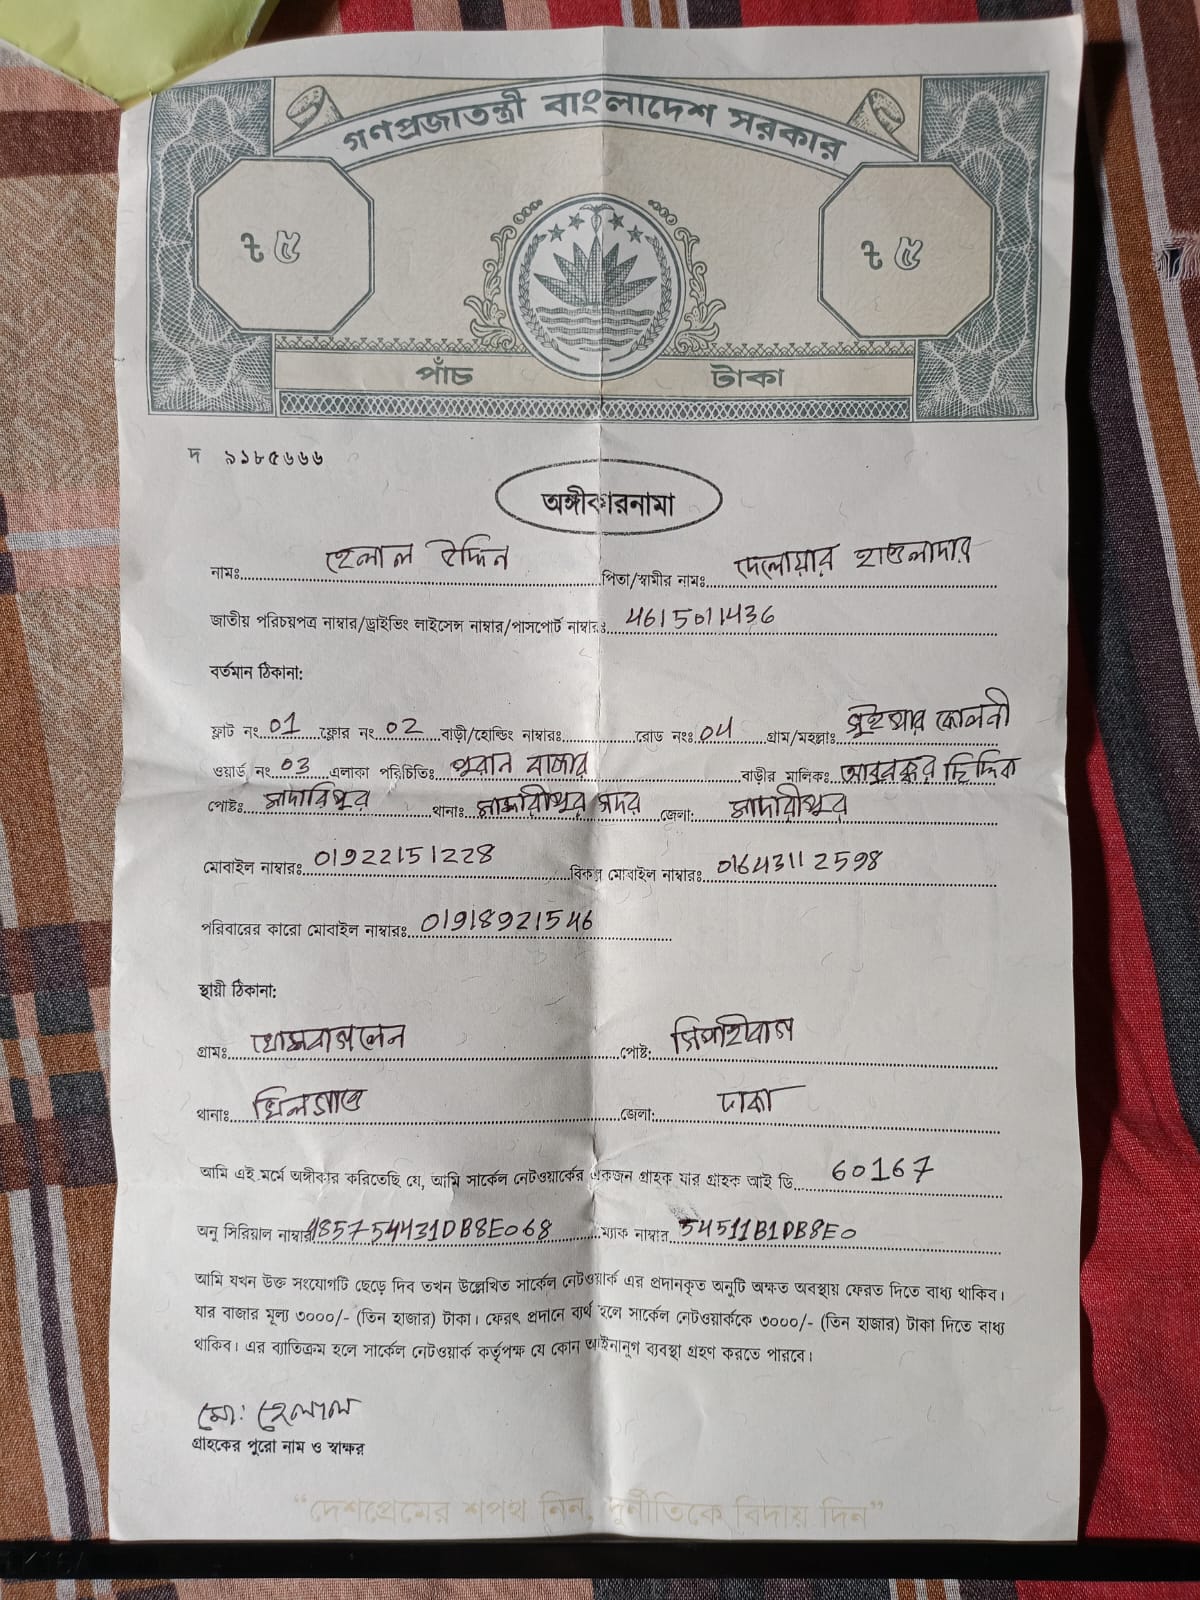 গণপ্রজাতন্ত্রী বাংলাদেশ সরকার
৳ ৫ ৳ ৫
পাঁচ টাকা
দ ৯১৮৫৬৬৬
অঙ্গীকারনামা
নামঃ হেলাল উদ্দিন পিতা/স্বামীর নামঃ দেলোয়ার হাওলাদার
জাতীয় পরিচয়পত্র নাম্বার/ড্রাইভিং লাইসেন্স নাম্বার/পাসপোর্ট নাম্বারঃ 4615011436
বর্তমান ঠিকানা:
ফ্লাট নং 01 ফ্লোর নং 02 বাড়ী/হোল্ডিং নাম্বারঃ রোড নংঃ 04 গ্রাম/মহল্লাঃ কোলনী
ওয়ার্ড নং 03 এলাকা পরিচিতিঃ পুরান বাজার বাড়ীর মালিকঃ
পোষ্টঃ মাদারিপুর থানাঃ মাদারীপুর সদর জেলা: মাদারীপুর
মোবাইল নাম্বারঃ 01922151228 বিকল্প মোবাইল নাম্বারঃ 01643112598
পরিবারের কারো মোবাইল নাম্বারঃ 01918921546
স্থায়ী ঠিকানা:
গ্রামঃ পোষ্ট: সিপাহীবাগ
থানাঃ খিলগাও জেলা: ঢাকা
আমি এই মর্মে অঙ্গীকার করিতেছি যে, আমি সার্কেল নেটওয়ার্কের একজন গ্রাহক যার গ্রাহক আই ডি 60167
অনু সিরিয়াল নাম্বার 485754431DB8E068 ম্যাক নাম্বার 54511B1DB8E0
আমি যখন উক্ত সংযোগটি ছেড়ে দিব তখন উল্লেখিত সার্কেল নেটওয়ার্ক এর প্রদানকৃত অনুটি অক্ষত অবস্থায় ফেরত দিতে বাধ্য থাকিব।
যার বাজার মূল্য ৩০০০/- (তিন হাজার) টাকা। ফেরৎ প্রদানে ব্যর্থ হলে সার্কেল নেটওয়ার্ককে ৩০০০/- (তিন হাজার) টাকা দিতে বাধ্য
থাকিব। এর ব্যাতিক্রম হলে সার্কেল নেটওয়ার্ক কর্তৃপক্ষ যে কোন আইনানুগ ব্যবস্থা গ্রহণ করতে পারবে।
মো: হেলাল
গ্রাহকের পুরো নাম ও স্বাক্ষর
“দেশপ্রেমের শপথ নিন, দুর্নীতিকে বিদায় দিন”